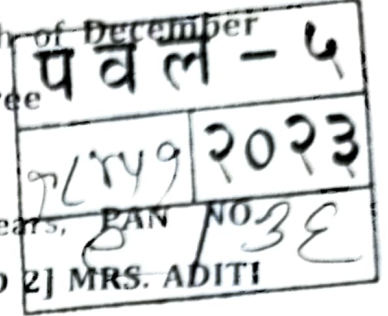 h of December
पवल - ५
ee
१८४५७ २०२३
ears, PAN NO
८ / ३६
2] MRS. ADITI